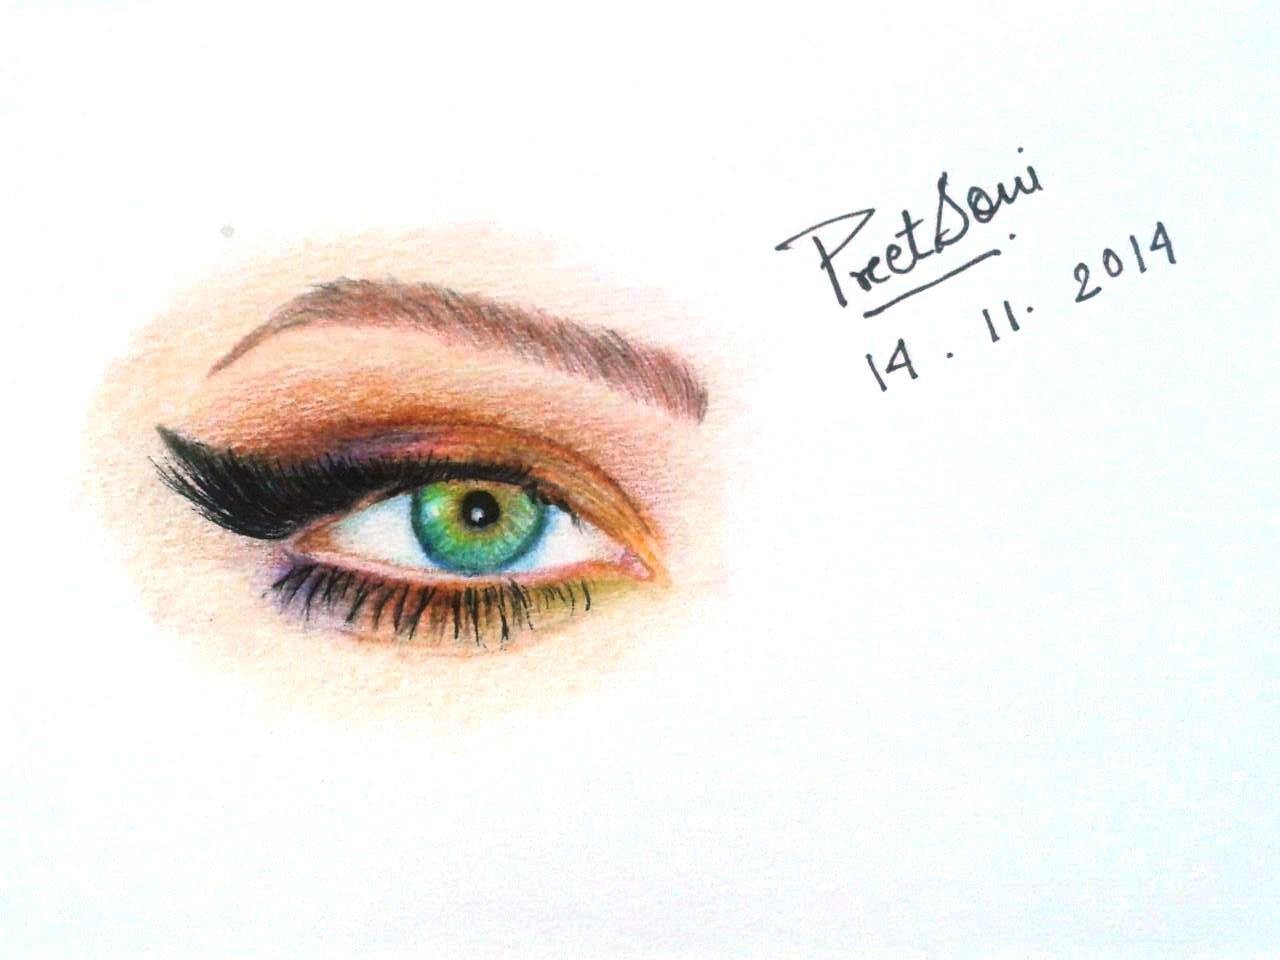 Preet Soni
14. 11. 2014